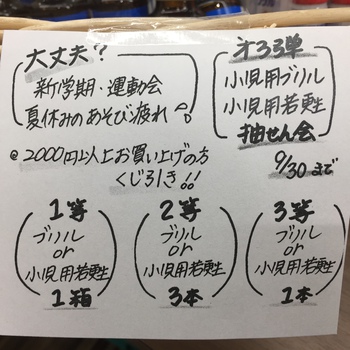 大丈夫?
新学期・運動会
夏休みのあそび疲れ
オ33弾
小児用ブリル
小児用若甦
抽せん会
@2000円以上お買い上げの方
くじ引き!!
9/30まで
1等
ブリル
or
小児用若甦
1箱
2等
ブリル
or
小児用若甦
3本
3等
ブリル
or
小児用若甦
1本